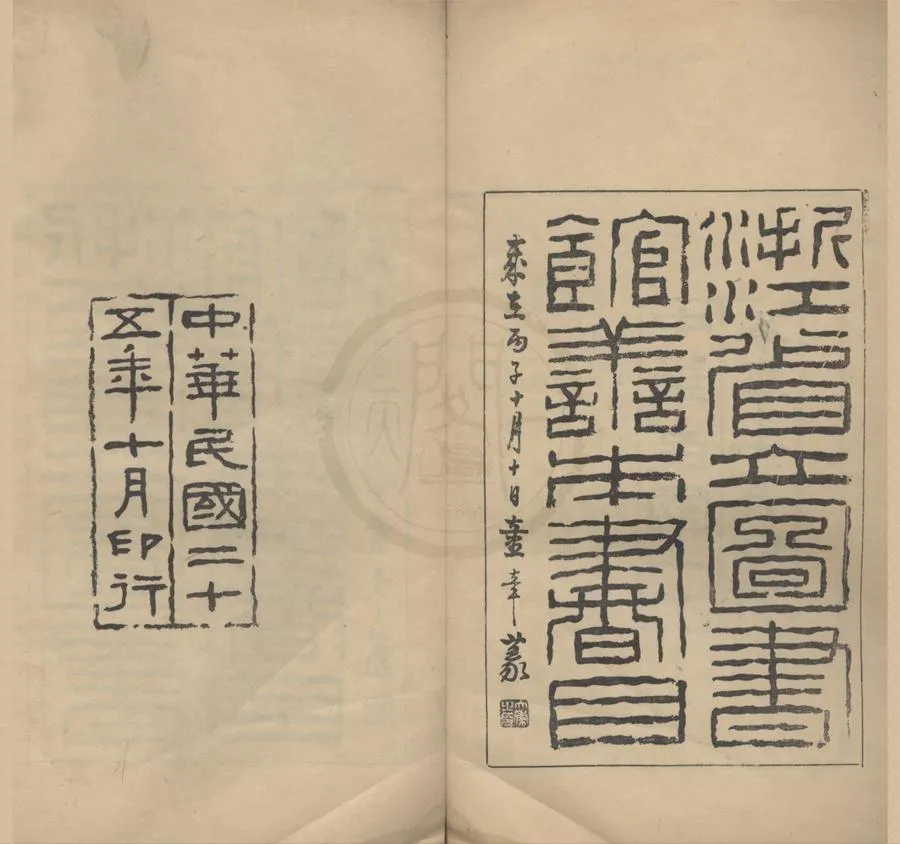 浙江省立圖書
館善本書目
歲在丙子十月十日童篆
中華民國二十
五年十月印行